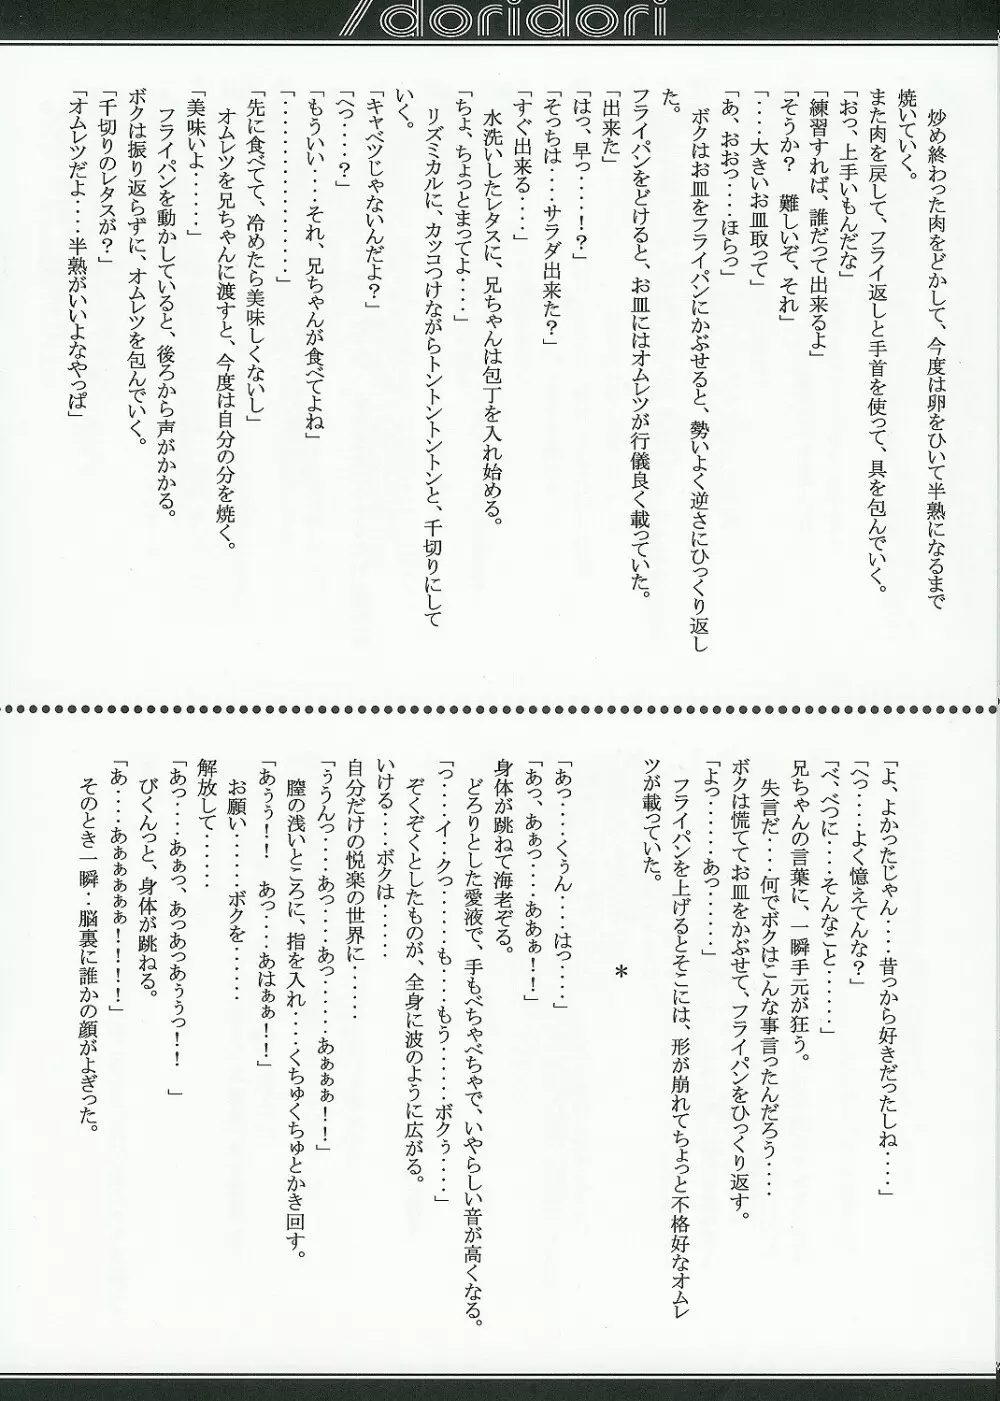 /doridori
炒め終わった肉をどかして、今度は卵をひいて半熟になるまで
焼いていく。
また肉を戻して、フライ返しと手首を使って、具を包んでいく。
「おっ、上手いもんだな」
「練習すれば、誰だって出来るよ」
「そうか？　難しいぞ、それ」
「・・・大きいお皿取って」
「あ、おおっ・・・・ほらっ」
ボクはお皿をフライパンにかぶせると、勢いよく逆さにひっくり返し
た。
フライパンをどけると、お皿にはオムレツが行儀良く載っていた。
「出来た」
「はっ、早っ・・・・！？」
「そっちは・・・サラダ出来た？」
「すぐ出来る・・・・」
水洗いしたレタスに、兄ちゃんは包丁を入れ始める。
「ちょ、ちょっとまってよ・・・・」
リズミカルに、カッコつけながらトントントントンと、千切りにして
いく。
「キャベツじゃないんだよ？」
「へっ・・・・？」
「もういい・・・それ、兄ちゃんが食べてよね」
「・・・・・・・・・・・・・・」
「先に食べてて、冷めたら美味しくないし」
オムレツを兄ちゃんに渡すと、今度は自分の分を焼く。
「美味いよ・・・・・」
フライパンを動かしていると、後ろから声がかかる。
ボクは振り返らずに、オムレツを包んでいく。
「千切りのレタスが？」
「オムレツだよ・・・・半熟がいいよなやっぱ」
「よ、よかったじゃん・・・・昔っから好きだったしね・・・・」
「へっ・・・・よく憶えてんな？」
「べ、べつに・・・・そんなこと・・・・・」
兄ちゃんの言葉に、一瞬手元が狂う。
失言だ・・・・何でボクはこんな事言ったんだろう・・・・
ボクは慌ててお皿をかぶせて、フライパンをひっくり返す。
「よっ・・・・・・あっ・・・・・」
フライパンを上げるとそこには、形が崩れてちょっと不格好なオムレ
ツが載っていた。
＊
「あっ・・・・くぅん・・・・はっ・・・・」
「あっ、あぁっ・・・・ああぁ！！」
身体が跳ねて海老ぞる。
どろりとした愛液で、手もべちゃべちゃで、いやらしい音が高くなる。
「っ・・・・イ・・・クっ・・・・も・・・・もう・・・・・・ボクぅ・・・・」
ぞくぞくとしたものが、全身に波のように広がる。
いける・・・・ボクは・・・・・
自分だけの悦楽の世界に・・・・・
「ぅうんっ・・・・あっ・・・・あっ・・・・・・あぁぁぁ！！」
膣の浅いところに、指を入れ・・・・くちゅくちゅとかき回す。
「あぅぅ！！　あっ・・・・あはぁぁ！！」
お願い・・・・・ボクを・・・・・
解放して・・・・・
「あっ・・・・あぁっ、あっあっあぅぅっ！！　」
びくんっと、身体が跳ねる。
「あ・・・・あぁぁぁぁぁ！！！！」
そのとき一瞬・・脳裏に誰かの顔がよぎった。